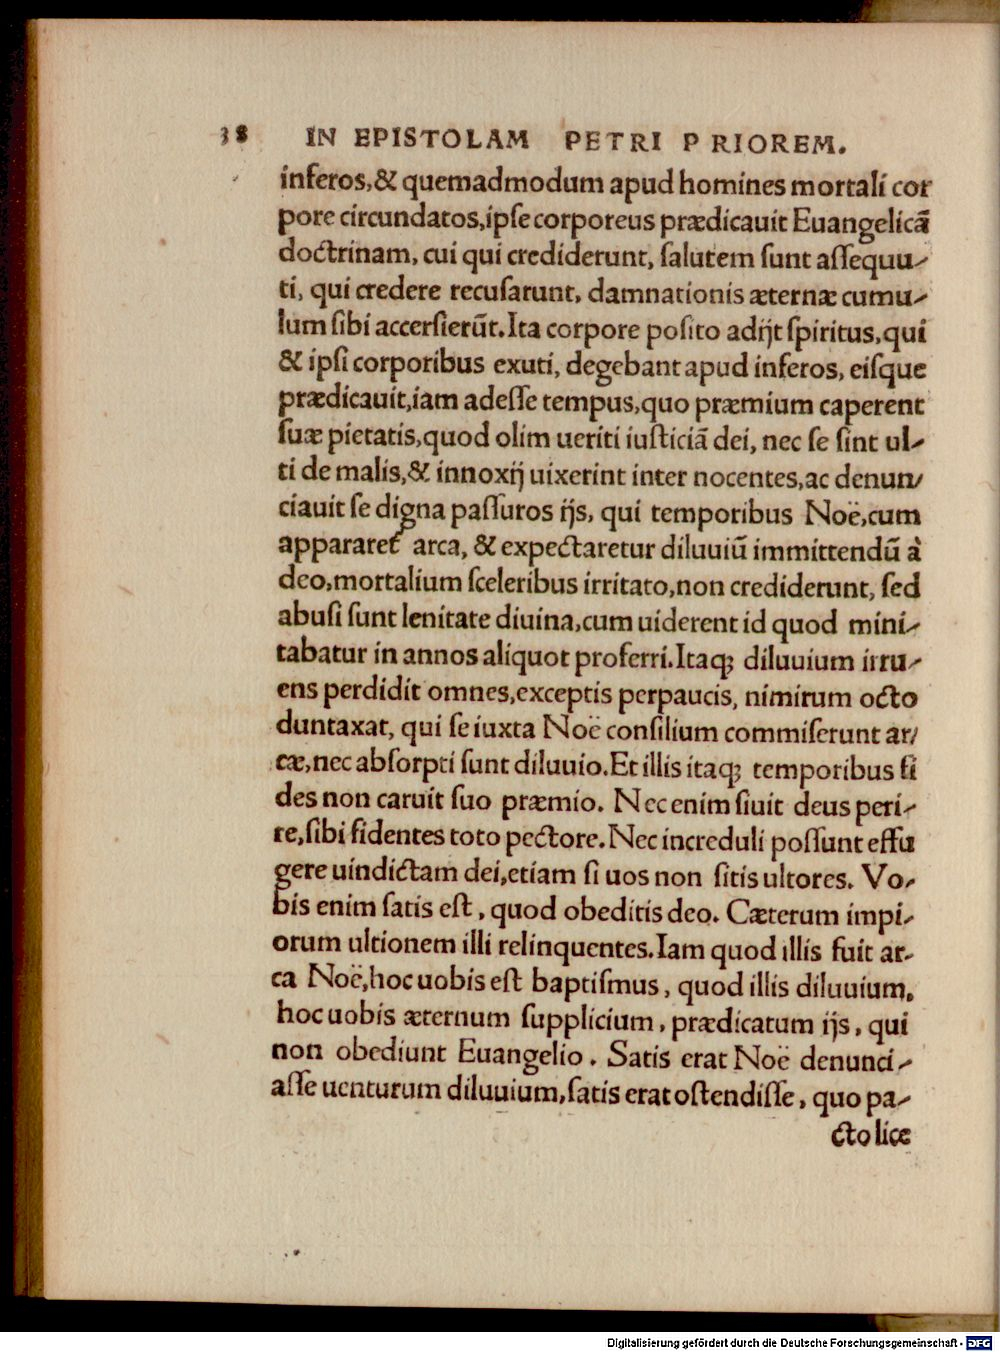 38 IN EPISTOLAM PETRI PRIOREM.
inferos,& quemadmodum apud homines mortali cor
pore circundatos,ipſe corporeus prædicauit Euangelicã
doctrinam, cui qui crediderunt, ſalutem ſunt aſſequu-
ti, qui credere recuſarunt, damnationis æternæ cumu-
lum ſibi accerſierũt.Ita corpore poſito adijt ſpiritus,qui
& ipſi corporibus exuti, degebant apud inferos, eiſque
prædicauit,iam adeſſe tempus,quo præmium caperent
ſuæ pietatis,quod olim ueriti iuſticiã dei, nec ſe ſint ul-
ti de malis,& innoxij uixerint inter nocentes,ac denun/
ciauit ſe digna paſſuros ijs, qui temporibus Noë,cum
appararet arca, & expectaretur diluuiũ immittendũ à
deo,mortalium ſceleribus irritato,non crediderunt, ſed
abuſi ſunt lenitate diuina,cum uiderent id quod mini-
tabatur in annos aliquot proferri.Itaq; diluuium irru-
ens perdidit omnes,exceptis perpaucis, nimirum octo
duntaxat, qui ſe iuxta Noë conſilium commiſerunt ar/
cæ,nec abſorpti ſunt diluuio.Et illis itaq; temporibus fi
des non caruit ſuo præmio. Nec enim ſiuit deus peri-
re,ſibi fidentes toto pectore.Nec increduli poſſunt effu
gere uindictam dei,etiam ſi uos non ſitis ultores. Vo-
bis enim ſatis eſt, quod obeditis deo. Cæterum impi-
orum ultionem illi relinquentes.Iam quod illis fuit ar-
ca Noë,hoc uobis eſt baptiſmus, quod illis diluuium,
hoc uobis æternum ſupplicium, prædicatum ijs, qui
non obediunt Euangelio. Satis erat Noë denunci-
aſſe uenturum diluuium,ſatis erat oſtendiſſe, quo pa-
cto lice
Digitalisierung gefördert durch die Deutsche Forschungsgemeinschaft - DFG